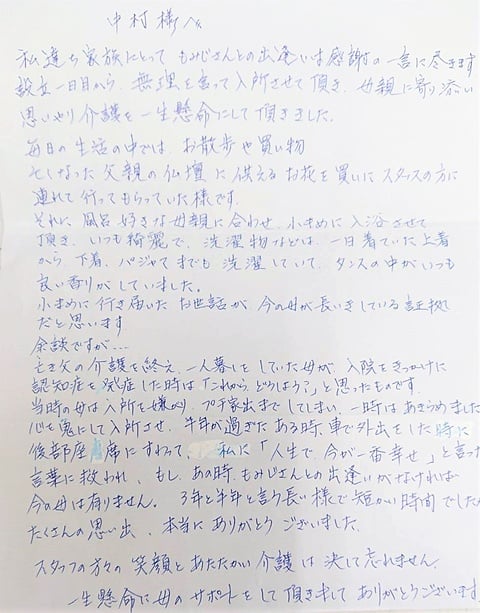 中村様へ
私達ら家族にとって もみじさんとの出逢いは感謝の一言に尽きます
設立一日目から、無理を言って入所させて頂き、母親に寄り添い
思いやり介護を一生懸命にして頂きました。
毎日の生活の中では、お散歩や買い物
亡くなった父親の仏壇に供えるお花を買いにスタッフの方に
連れて行ってもらっていた様です。
それに風呂好きな母親に合わせ、小まめに入浴させて
頂き、いつも綺麗で、洗濯物などは、一日着ていた上着
から、下着、パジャマまでも洗濯していて、タンスの中がいつも
良い香りがしていました。
小まめに行き届いたお世話が今の母が長いきしている証拠
だと思います
余談ですが…
亡き父の介護を終え、一人暮しをしていた母が、入院をきっかけに
認知症を発症した時は「これからどうしよう?」と思ったものです。
当時の母は入所を嫌がり、プチ家出までしてしまい、一時はあきらめました
心を鬼にして入所させ、半年が過ぎたある時、車で外出をした時に
後部座席にすわって 私に「人生で、今が一番幸せ」と言った
言葉に救われ、もし、あの時、もみじさんとの出逢いがなければ
今の母は有りません。 3年と半年と言う長い様で短かい時間でしたが
たくさんの思い出、本当にありがとうございました。
スタッフの方々の笑顔とあたたかい介護は決して忘れません。
一生懸命に母のサポートをして頂きまして ありがとうございます